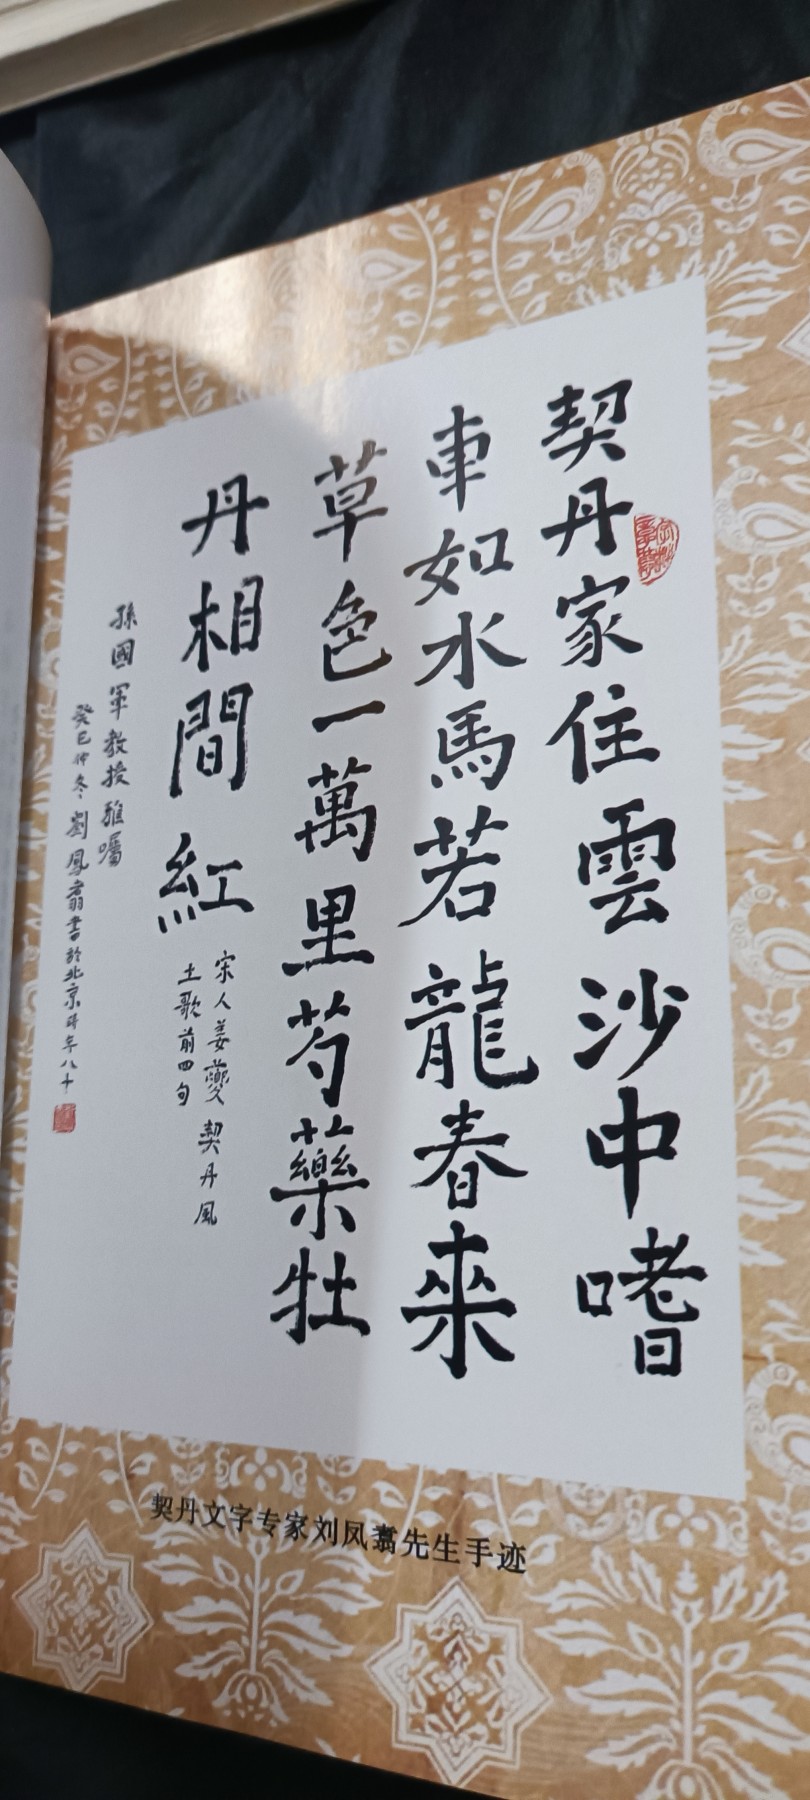 契丹家住雲沙中嗜
車如水馬若龍春来
草色一萬里芍藥牡
丹相間紅
宋人姜夔契丹風
土歌前四句
孫國軍教授雅囑
癸巳仲冬劉鳳翥書於北京時年八十
契丹文字专家刘凤翥先生手迹